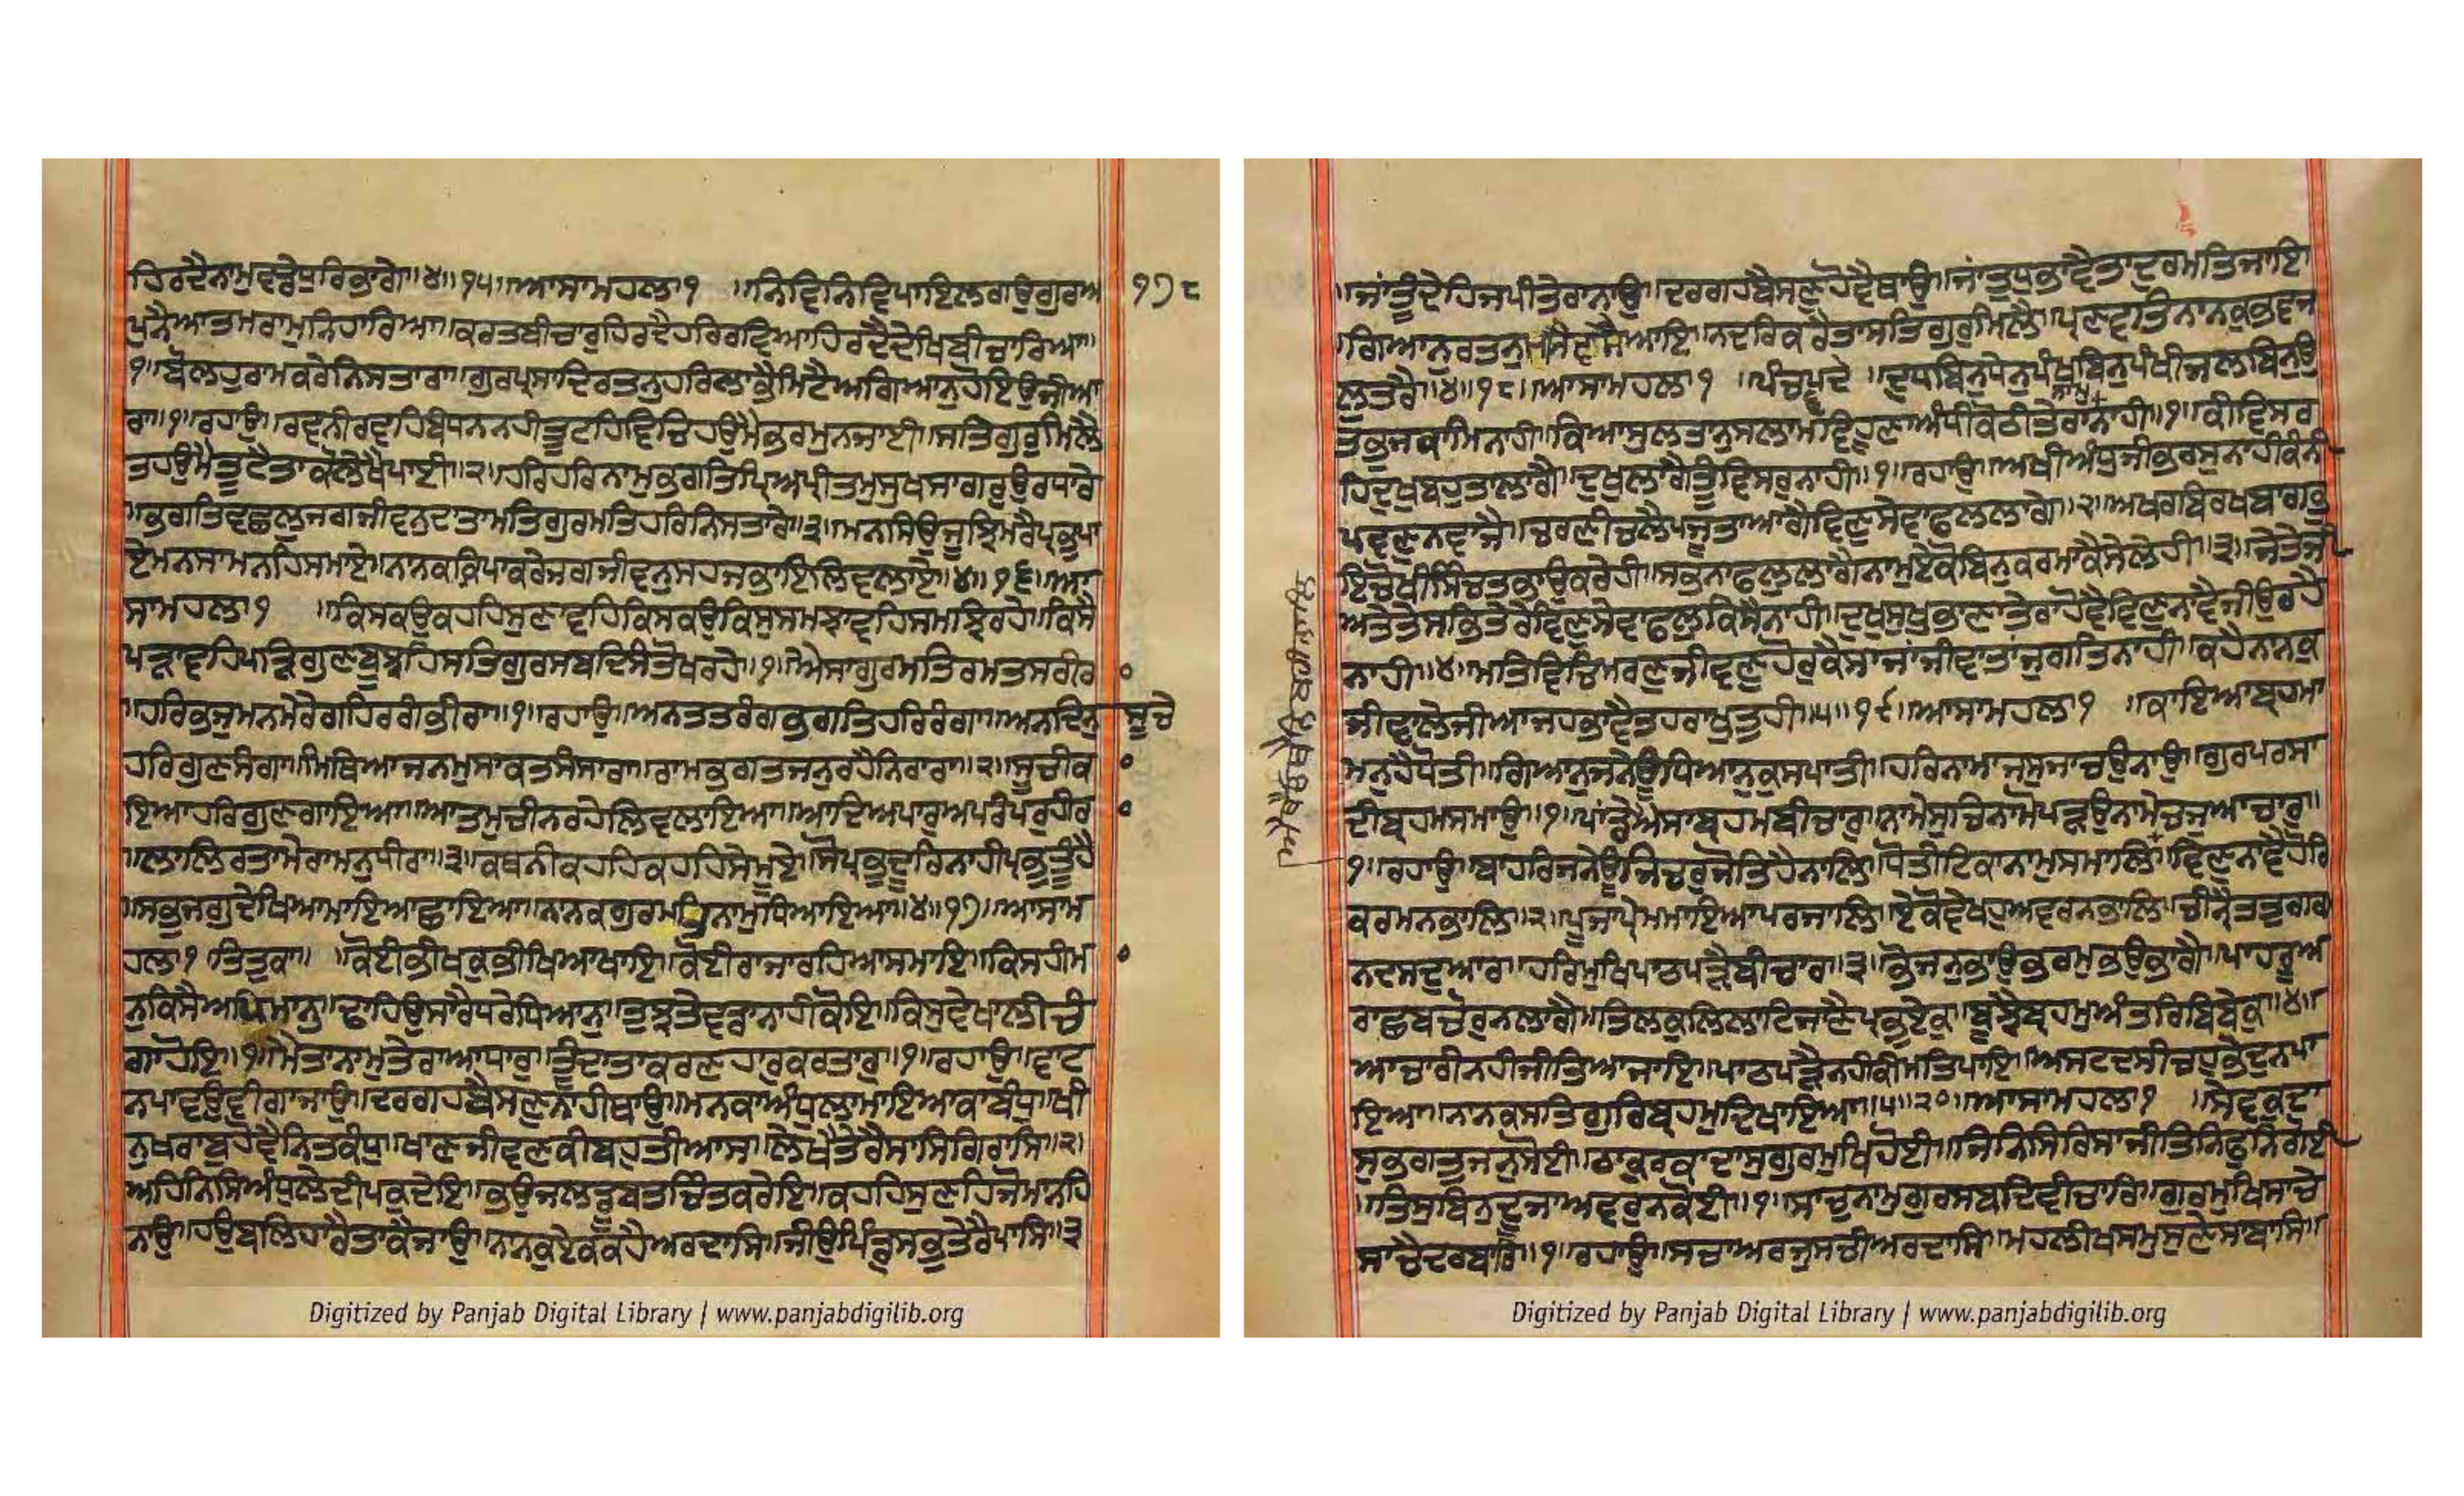 ਹਿਰਦੈਨਾਮੁਵਡੋਪਰਿਭਾਗੇ॥੪॥੧੫॥ਆਸਾਮਹਲਾ੧ ॥ਨਿਵਿਨਿਵਿਪਾਇਲਗਉਗੁਰਅ
੧੭੮
ਪੁਨੈਆਤਮਰਾਮੁਨਿਹਾਰਿਆ॥ਕਰਤਬੀਚਾਰੁਹਿਰਦੈਹਰਿਰਵਿਆਹਿਰਦੈਦੇਖਿਬੀਚਾਰਿਆ॥
੧॥ਬੋਲਹੁਰਾਮਕਰੇਨਿਸਤਾਰਾ॥ਗੁਰਪ੍ਰਸਾਦਿਰਤਨੁਹਰਿਲਾਭੈਮਿਟੈਅਗਿਆਨੁਹੋਇਉਜੀਆ
ਰਾ॥੧॥ਰਹਾਉ॥ਰਵਨੀਰਵਹਿਬੰਧਨਨਹੀਤੂਟਹਿਵਿਚਿਹਉਮੈਭਰਮੁਨਜਾਈ॥ਸਤਿਗੁਰੁਮਿਲੈ
ਤਹਉਮੈਤੂਟੈਤਾਕੋਲੇਖੈਪਾਈ॥੨॥ਹਰਿਹਰਿਨਾਮੁਭਗਤਿਪ੍ਰਿਅਪ੍ਰੀਤਮੁਸੁਖਸਾਗਰੁਉਰਧਾਰੇ
॥ਭਗਤਿਵਛਲੁਜਗਜੀਵਨੁਦਾਤਾਮਤਿਗੁਰਮਤਿਹਰਿਨਿਸਤਾਰੇ॥੩॥ਮਨਸਿਉਜੂਝਿਮਰੈਪ੍ਰਭੁਪਾ
ਏਮਨਸਾਮਨਹਿਸਮਾਏ॥ਨਾਨਕਕ੍ਰਿਪਾਕਰੇਜਗਜੀਵਨੁਸਹਜਭਾਇਲਿਵਲਾਏ॥੪॥੧੬॥ਆ
ਸਾਮਹਲਾ੧ ॥ਕਿਸਕਉਕਹਹਿਸੁਣਾਵਹਿਕਿਸਕਉਕਿਸੁਸਮਝਾਵਹਿਸਮਝਿਰਹੇ॥ਕਿਸੈ
ਪੜਾਵਹਿਪੜਿਗੁਣਬੂਝਹਿਸਤਿਗੁਰਸਬਦਿਸੰਤੋਖਰਹੇ॥੧॥ਐਸਾਗੁਰਮਤਿਰਮਤਸਰੀਰ
॥ਹਰਿਭਜੁਮਨਮੇਰੈਗਹਿਰਗੰਭੀਰਾ॥੧॥ਰਹਾਉ॥ਅਨਤਤਰੰਗਭਗਤਿਹਰਿਰੰਗਾ॥ਅਨਦਿਨੁ
ਸੂਚੇ
ਹਰਿਗੁਣਸੰਗਾ॥ਮਿਥਿਆਜਨਮੁਸਾਕਤਸੰਸਾਰਾ॥ਰਾਮਭਗਤਜਨੁਰਹੈਨਿਰਾਰਾ॥੨॥ਸੂਚੀਕ
ਇਆਹਰਿਗੁਣਗਾਇਆ॥ਆਤਮੁਚੀਨਰਹੇਲਿਵਲਾਇਆ॥ਆਦਿਅਪਾਰੁਅਪਰੰਪਰੁਹੀਰ
॥ਲਾਲਿਰਤਾਮੇਰਾਮਨੁਧੀਰਾ॥੩॥ਕਥਨੀਕਹਹਿਕਹਹਿਸੇਮੂਏ॥ਸੋਪ੍ਰਭੁਦੂਰਿਨਾਹੀਪ੍ਰਭੁਤੂੰਹੈ
॥ਸਭੁਜਗੁਦੇਖਿਆਮਾਇਆਛਾਇਆ॥ਨਾਨਕਗੁਰਮਤਿਨਾਮੁਧਿਆਇਆ॥੪॥੧੭॥ਆਸਾਮ
ਹਲਾ੧ ਤਿਤੁਕਾ॥ ॥ਕੋਈਭੀਖਕੁਭੀਖਿਆਖਾਇ॥ਕੋਈਰਾਜਾਰਹਿਆਸਮਾਇ॥ਕਿਸਹੀਮ
ਨੁਕਿਸੈਅਪਿਮਾਨੁ॥ਢਾਹਿਉਸਾਰੈਧਰੇਧਿਆਨੁ॥ਤੁਝਤੇਵਡਾਨਾਹੀਕੋਇ॥ਕਿਸੁਵੇਖਾਲੀਚੰ
ਗਾਹੋਇ॥੧॥ਮੈਤਾਨਾਮੁਤੇਰਾਆਧਾਰੁ॥ਤੂੰਦਾਤਾਕਰਣਹਾਰੁਕਰਤਾਰੁ॥੧॥ਰਹਾਉ॥ਵਾਟ
ਨਪਾਵਉਵੀਗਾਜਾਉ॥ਦਰਗਹਬੈਸਣਨਾਹੀਥਾਉ॥ਮਨਕਾਅੰਧੁਲਾਮਾਇਆਕਾਬੰਧੁ॥ਖੀ
ਨੁਖਰਾਬੁਹੋਵੈਨਿਤਕੰਧੁ॥ਖਾਣਜੀਵਣਕੀਬਹੁਤੀਆਸ॥ਲੇਖੈਤੇਰੈਸਾਸਿਗਿਰਾਸਿ॥੨॥
ਅਹਿਨਿਸਿਅੰਧੁਲੇਦੀਪਕੁਦੇਇ॥ਭਉਜਲਡੂਬਤਚਿੰਤਕਰੇਇ॥ਕਹਹਿਸੁਣਹਿਜੋਮਾਨਹਿ
ਨਾਉ॥ਹਉਬਲਿਹਾਰੈਤਾਕੈਜਾਉ॥ਨਾਨਕੁਏਕਕਹੈਅਰਦਾਸਿ॥ਜੀਉਪਿੰਡੁਸਭੁਤੇਰੈਪਾਸਿ॥੩
॥ਜਾਂਤੂੰਦੇਹਿਜਪੀਤੇਰਾਨਾਉ॥ਦਰਗਹਬੈਸਣੁਹੋਵੈਥਾਉ॥ਜਾਂਤੁਧੁਭਾਵੈਤਾਦੁਰਮਤਿਜਾਇ
॥ਗਿਆਨੁਰਤਨੁਮਨਿਵਸੈਆਇ॥ਨਦਰਿਕਰੈਤਾਸਤਿਗੁਰੁਮਿਲੈ॥ਪ੍ਰਣਵਤਿਨਾਨਕੁਭਵਜ
ਲੁਤਰੈ॥੪॥੧੮॥ਆਸਾਮਹਲਾ੧ ॥ਪੰਚਪਦੇ ॥ਦੁਧਬਿਨੁਧੇਨੁਪੰਖਬਿਨੁਪੰਖੀਜਲਬਿਨੁਉ
ਤਭੁਜਕਾਮਿਨਾਹੀ॥ਕਿਆਸੁਲਤਾਨੁਸਲਾਮਵਿਹੂਣਾਅੰਧੀਕੋਠੀਤੇਰਾਨਾਹੀ॥੧॥ਕੀਵਿਸਰ
ਨਾਮੁ
ਹਿਦੁਖੁਬਹੁਤਾਲਾਗੈ॥ਦੁਖੁਲਾਗੈਤੂੰਵਿਸਰੁਨਾਹੀ॥੧॥ਰਹਾਉ॥ਅਖੀਅੰਧੁਜੀਭਰਸੁਨਾਹੀਕੰਨੀ
ਪਵਣੁਨਵਾਜੈ॥ਚਰਣੀਚਲੈਪਜੂਤਾਆਗੈਵਿਣੁਸੇਵਾਫਲਲਾਗੇ॥੨॥ਅਖਰਬਿਰਖਬਾਗਭੁ
ਇਚੋਖੀਸਿੰਚਤਭਾਉਕਰੇਹੀ॥ਸਭਨਾਫਲੁਲਾਗੈਨਾਮੁਏਕੋਬਿਨੁਕਰਮਾਕੈਸੇਲੇਹੀ॥੩॥ਜੇਤੇਜੀ
ਅਤੇਤੇਸਭਿਤੇਰੇਵਿਣੁਸੇਵਾਫਲੁਕਿਸੈਨਾਹੀ॥ਦੁਖੁਸੁਖੁਭਾਣਾਤੇਰਾਹੋਵੈਵਿਣੁਨਾਵੈਜੀਉਰਹੈ
ਨਾਹੀ॥੪॥ਮਤਿਵਿਚਿਮਰਣੁਜੀਵਣੁਹੋਰੁਕੈਸਾਜਾਂਜੀਵਾਤਾਂਜੁਗਤਿਨਾਹੀ॥ਕਹੈਨਾਨਕੁ
ਜੀਵਾਲੇਜੀਆਜਹਭਾਵੈਤਹਰਾਖੁਤੁਹੀ॥੫॥੧੯॥ਆਸਾਮਹਲਾ੧ ॥ਕਾਇਆਬ੍ਰਹਮਾ
ਮਨੁਹੈਧੋਤੀ॥ਗਿਆਨੁਜਨੇਊਧਿਆਨੁਕੁਸਪਾਤੀ॥ਹਰਿਨਾਮਾਜਸੁਜਾਚਉਨਾਉ॥ਗੁਰਪਰਸਾ
ਦੀਬ੍ਰਹਮਸਮਾਉ॥੧॥ਪਾਂਡੇਐਸਾਬ੍ਰਹਮਬੀਚਾਰੁ॥ਨਾਮੇਸੁਚਿਨਾਮੋਪੜਉਨਾਮੇਚਜੁਆਚਾਰੁ॥
੧॥ਰਹਾਉ॥ਬਾਹਰਿਜਨੇਊਜਿਚਰੁਜੋਤਿਹੈਨਾਲਿ॥ਧੋਤੀਟਿਕਾਨਾਮੁਸਮਾਲਿ॥ਵਿਣੁਨਾਵੈਹੋਰਿ
ਕਰਮਨਭਾਲਿ॥੨॥ਪੂਜਾਪ੍ਰੇਮਮਾਇਆਪਰਜਾਲਿ॥ਏਕੋਵੇਖਹੁਅਵਰੁਨਭਾਲਿ॥ਚੀਨੈਤਤੁਗਗ
ਨਦਸਦੁਆਰ॥ਹਰਿਮੁਖਿਪਾਠਪੜੈਬੀਚਾਰ॥੩॥ਭੋਜਨੁਭਾਉਭਰਮੁਭਉਭਾਗੈ॥ਪਾਹਰੂਅ
ਰਾਛਬਚੋਰੁਨਲਾਗੈ॥ਤਿਲਕੁਲਿਲਾਟਿਜਾਣੈਪ੍ਰਭੁਏਕੁ॥ਬੂਝੈਬ੍ਰਹਮੁਅੰਤਰਿਬਿਬੇਕੁ॥੪॥
ਆਚਾਰੀਨਹੀਜੀਤਿਆਜਾਇ॥ਪਾਠਪੜੈਨਹੀਕੀਮਤਿਪਾਇ॥ਅਸਟਦਸੀਚਹੁਭੇਦੁਨਪਾ
ਇਆ॥ਨਾਨਕਸਤਿਗੁਰਿਬ੍ਰਹਮੁਦਿਖਾਇਆ॥੫॥੨੦॥ਆਸਾਮਹਲਾ੧ ॥ਸੇਵਕੁਦਾ
ਸੁਭਗਤੁਜਨੁਸੋਈ॥ਠਾਕੁਰਕਾਦਾਸੁਗੁਰਮੁਖਿਹੋਈ॥ਜਿਨਿਸਿਰਿਸਾਜੀਤਿਨਿਫੁਨਿਗੋਈ
॥ਤਿਸੁਬਿਨੁਦੂਜਾਅਵਰੁਨਕੋਈ॥੧॥ਸਾਚੁਨਾਮੁਗੁਰਸਬਦਿਵੀਚਾਰਿ॥ਗੁਰਮੁਖਿਸਾਚੇ
ਸਾਚੈਦਰਬਾਰਿ॥੧॥ਰਹਾਉ॥ਸਚਾਅਰਜੁਸਚੀਅਰਦਾਸਿ॥ਮਹਲੀਖਸਮੁਸੁਣੇਸਾਬਾਸਿ॥
Digitized by Panjab Digital Library | www.panjabdigilib.org
Digitized by Panjab Digital Library | www.panjabdigilib.org